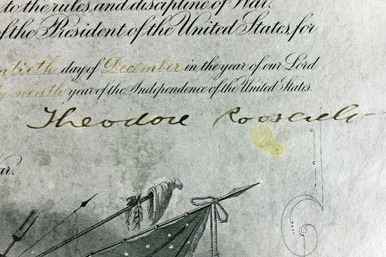 to the rules, and discipline of War.
of the President of the United States, for
day of December in the year of our Lord
ninth year of the Independence of the United States.
Theodore Roosevelt